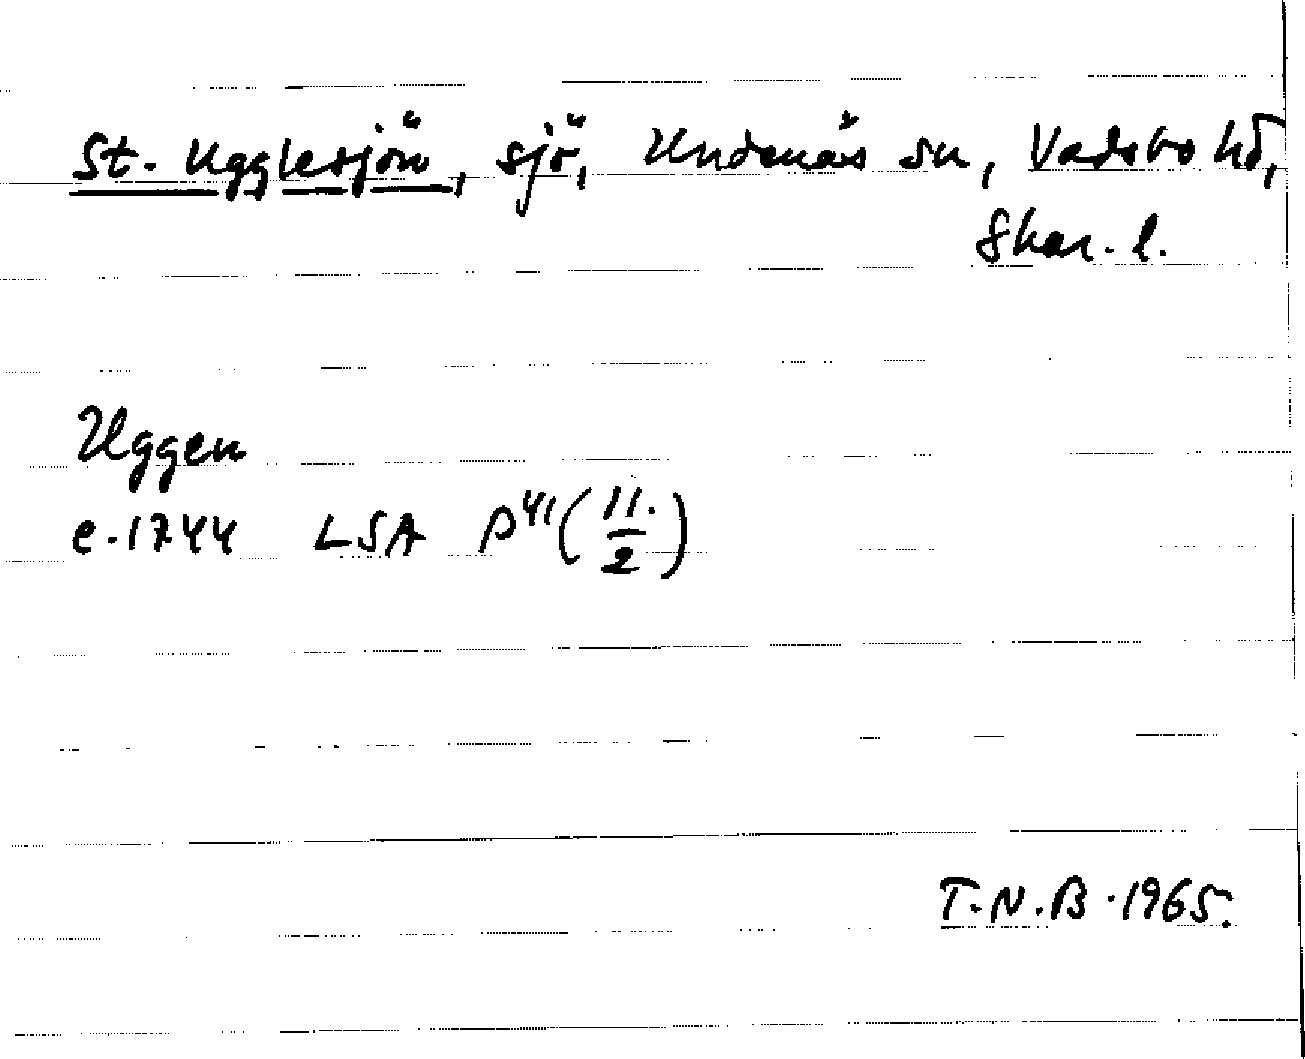 St. Ugglesjön, sjö, Undenäs sn, Vadsbo hd,
Skar. l.
Uggen
c. 1744 LSA P⁴¹(11./2)
T.N.B. 1965.